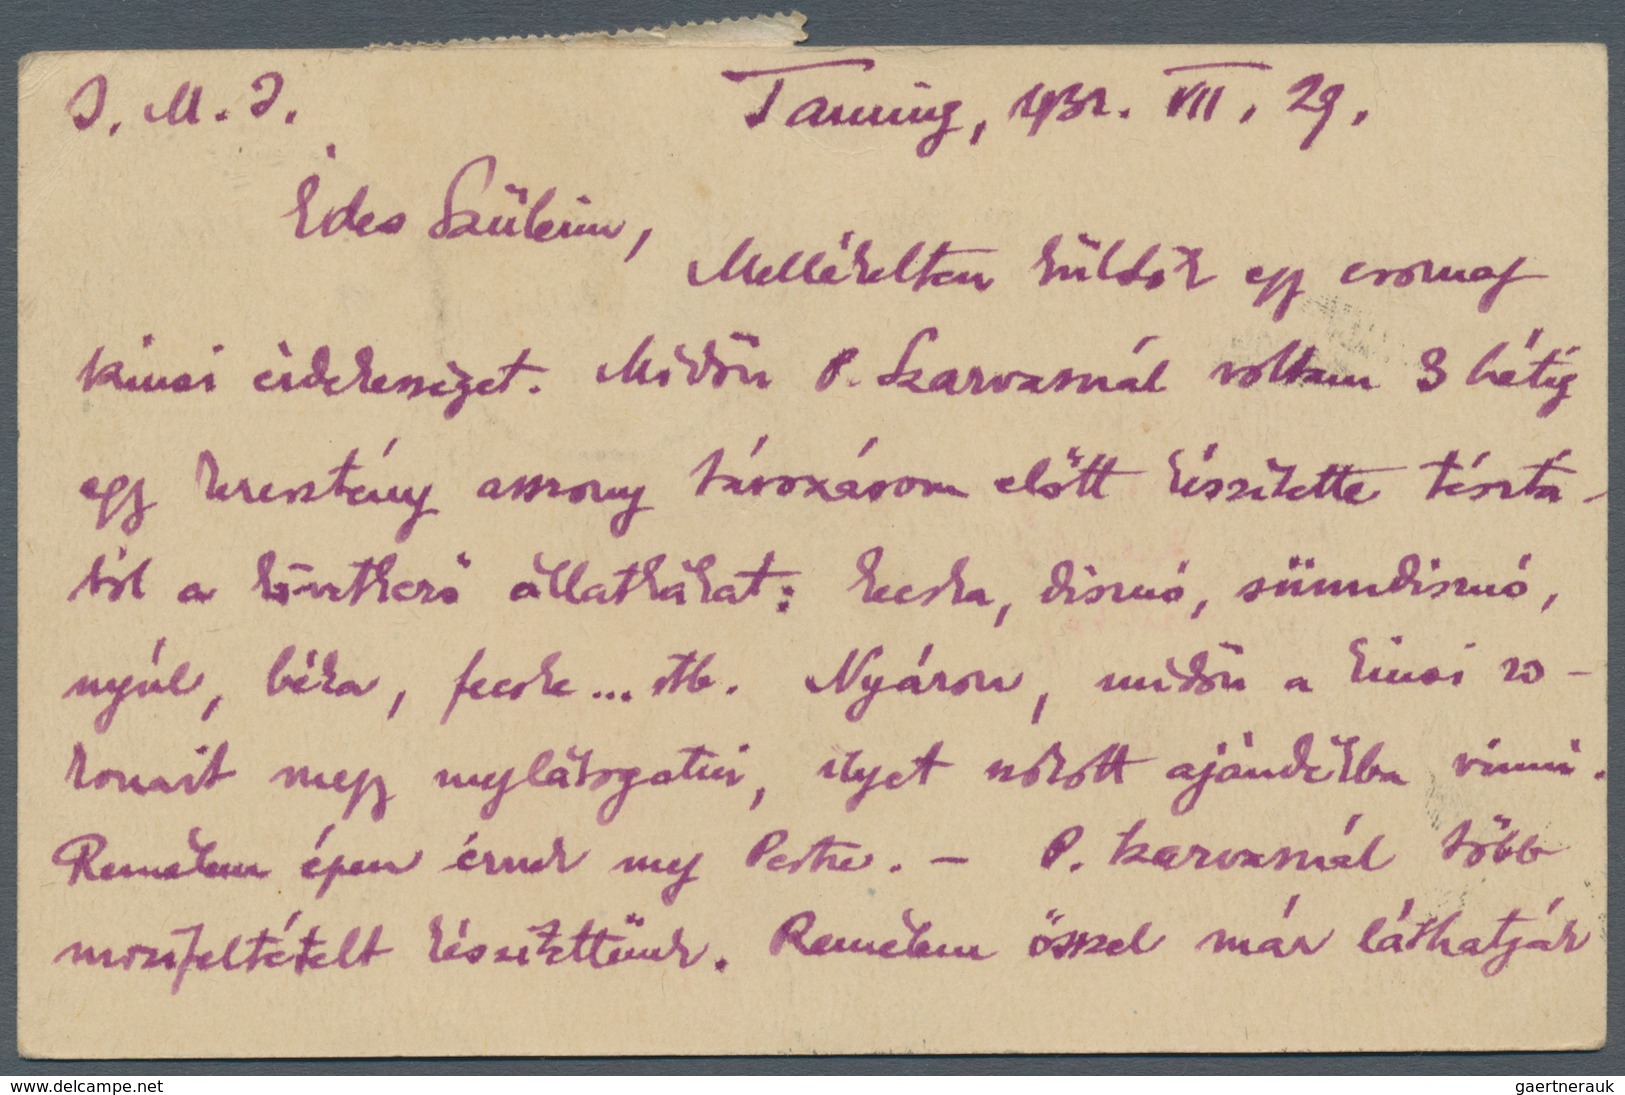 J. M. J.
Taming, 1932. VII. 29.
Édes Szüleim,
Mellékelten küldök egy csomag
kinai érdekességet. Midőn P. Szarvasnál voltam 3 hétig
egy keresztény asszony távozásom előtt készitette tésztá-
ból a következő állatkákat: kecske, disznó, sündisznó,
nyúl, béka, fecske... stb. Nyáron, midőn a kinai ro-
konait megy meglátogatni, ilyet szokott ajándékba vinni.
Remélem épen érnek meg Pestre. – P. Szarvasnál több
mozifeltételt készitettünk. Remélem ősszel már láthatják
www.delcampe.net
gaertnerauk